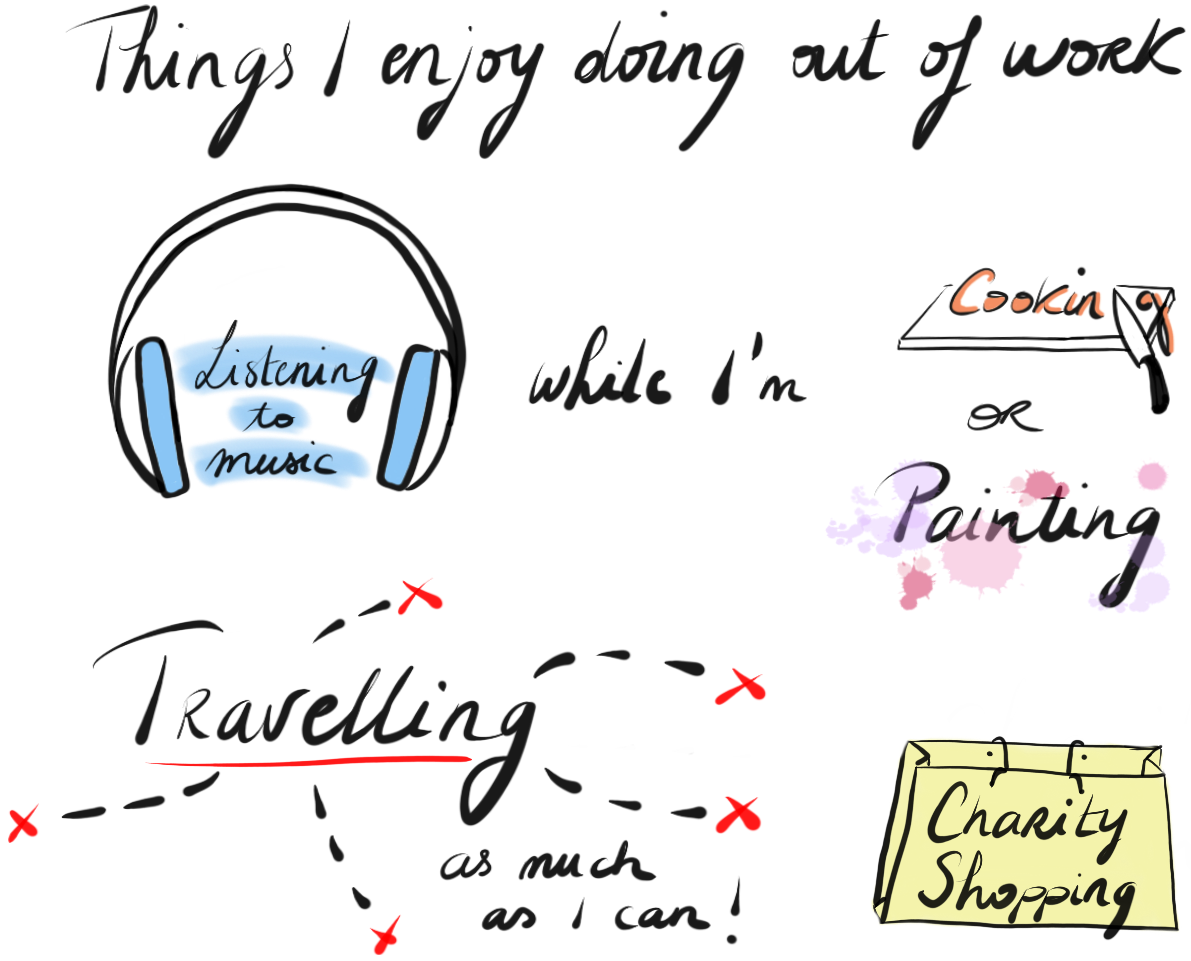 Things I enjoy doing out of work
Listening
to
music
while I'm
Cooking
OR
Painting
Travelling
as much
as I can!
Charity
Shopping